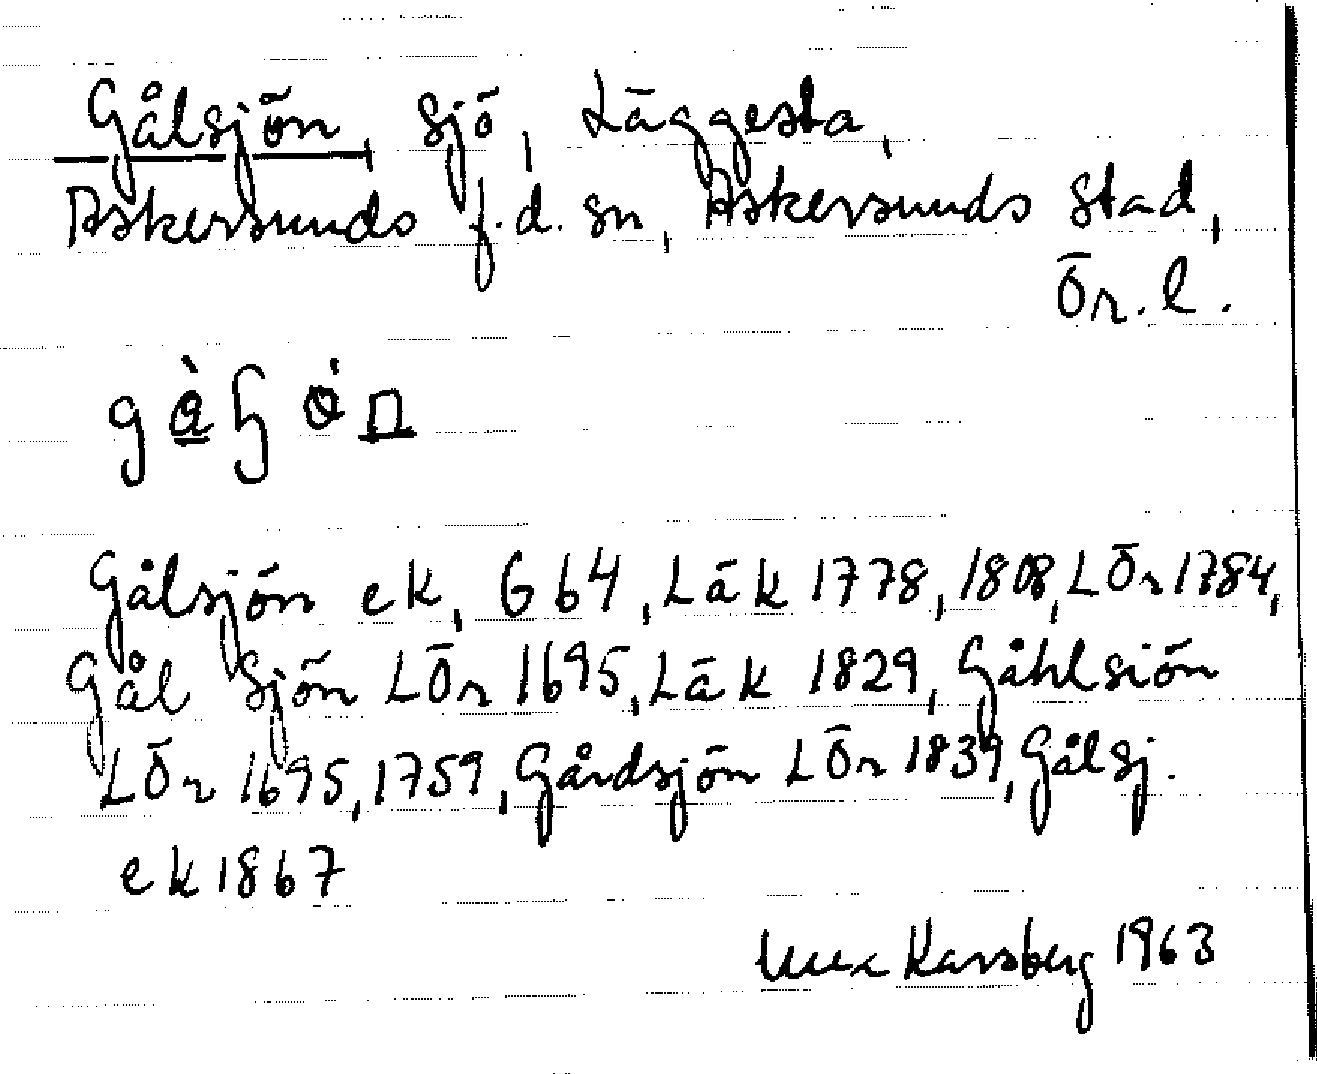 Gålsjön, sjö, Läggesta,
Askersunds f.d. sn, Askersunds stad,
Ör. l.
Gålsjön ek, G 64, Läk 1778, 1808, LÖr 1784,
Gål Sjön LÖr 1695, Läk 1829, Gåhlsiön
LÖr 1695, 1759, Gårdsjön LÖr 1839, Gålsj.
ek 1867
Karsberg 1963